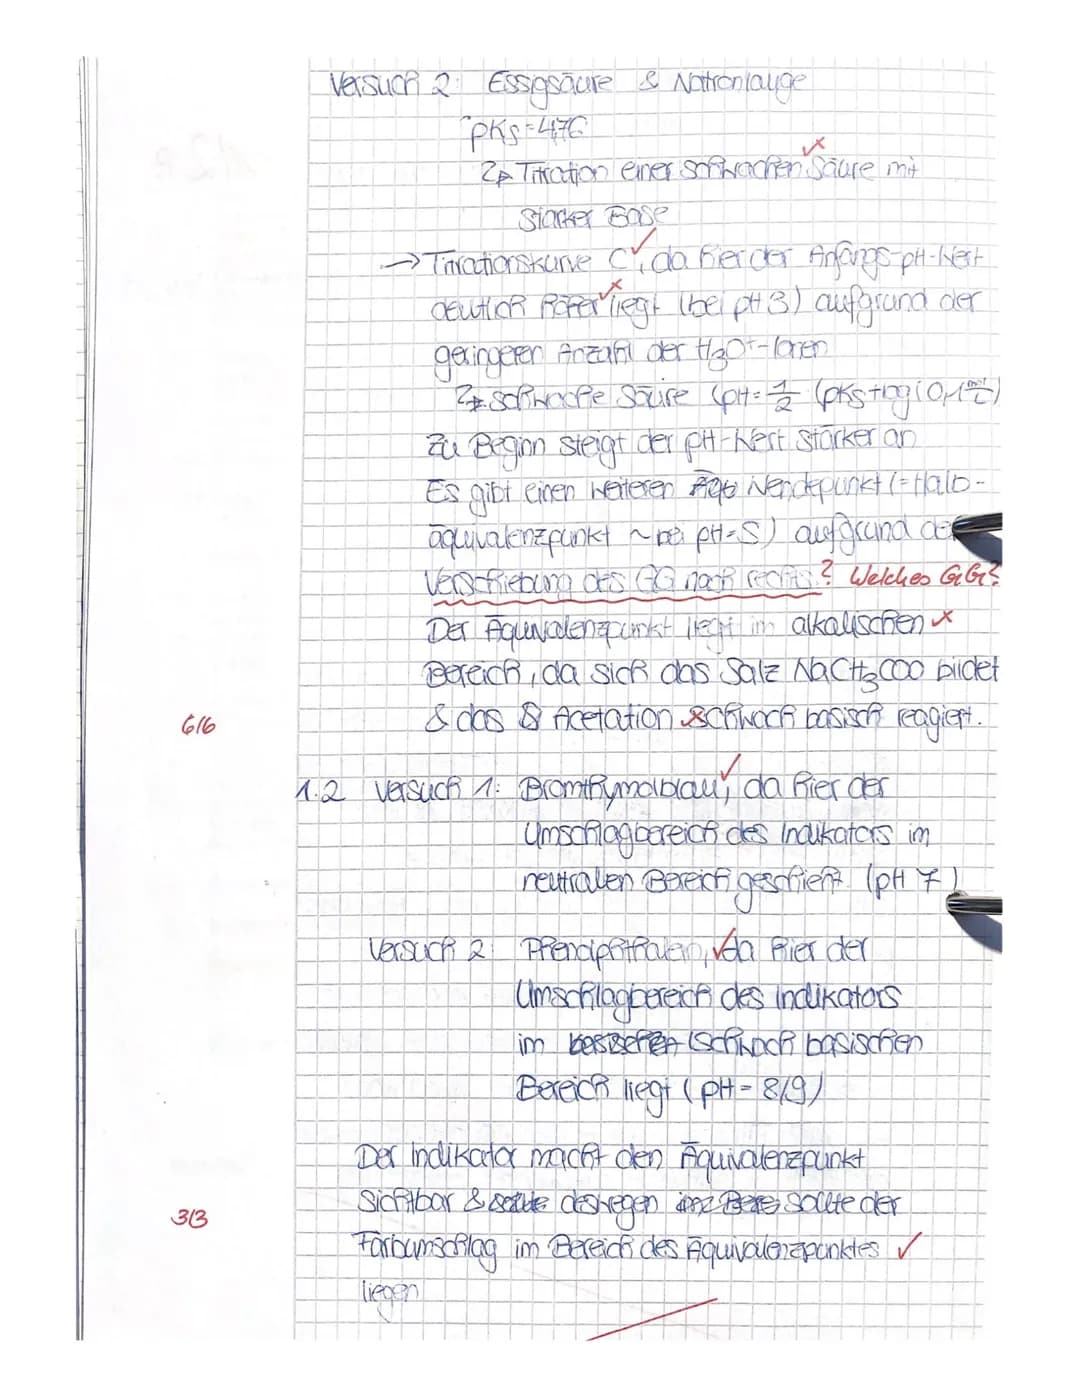 Versuch 2: Essigsäure & Natronlauge
pKs = 4,76
↳ Titration einer schwachen Säure mit
starker Base
→ Titrationskurve C, da hier der Anfangs-pH-Wert
deutlich höher liegt (bei pH 3) aufgrund der
geringeren Anzahl der H₃O⁺-Ionen
↳ schwache Säure (pH = 1/2 (pKs + log(0,1 mol/L)
Zu Beginn steigt der pH-Wert stärker an
Es gibt einen weiteren Wendepunkt (= Halb-
äquivalenzpunkt ~ bei pH = 5) aufgrund der
Verschiebung des GG nach rechts. ? Welches GG?
Der Äquivalenzpunkt liegt im alkalischen
Bereich, da sich das Salz NaCH₃COO bildet
& das Acetation schwach basisch reagiert.
6/6
1.2 Versuch 1: Bromthymolblau, da hier der
Umschlagbereich des Indikators im
neutralen Bereich geschieht (pH 7)
Versuch 2: Phenolphthalein, da hier der
Umschlagbereich des Indikators
im (schwach basischen
Bereich liegt (pH = 8/9)
Der Indikator macht den Äquivalenzpunkt
sichtbar & deshegen sollte der
3/3
Farbumschlag im Bereich des Äquivalenzpunktes
liegen